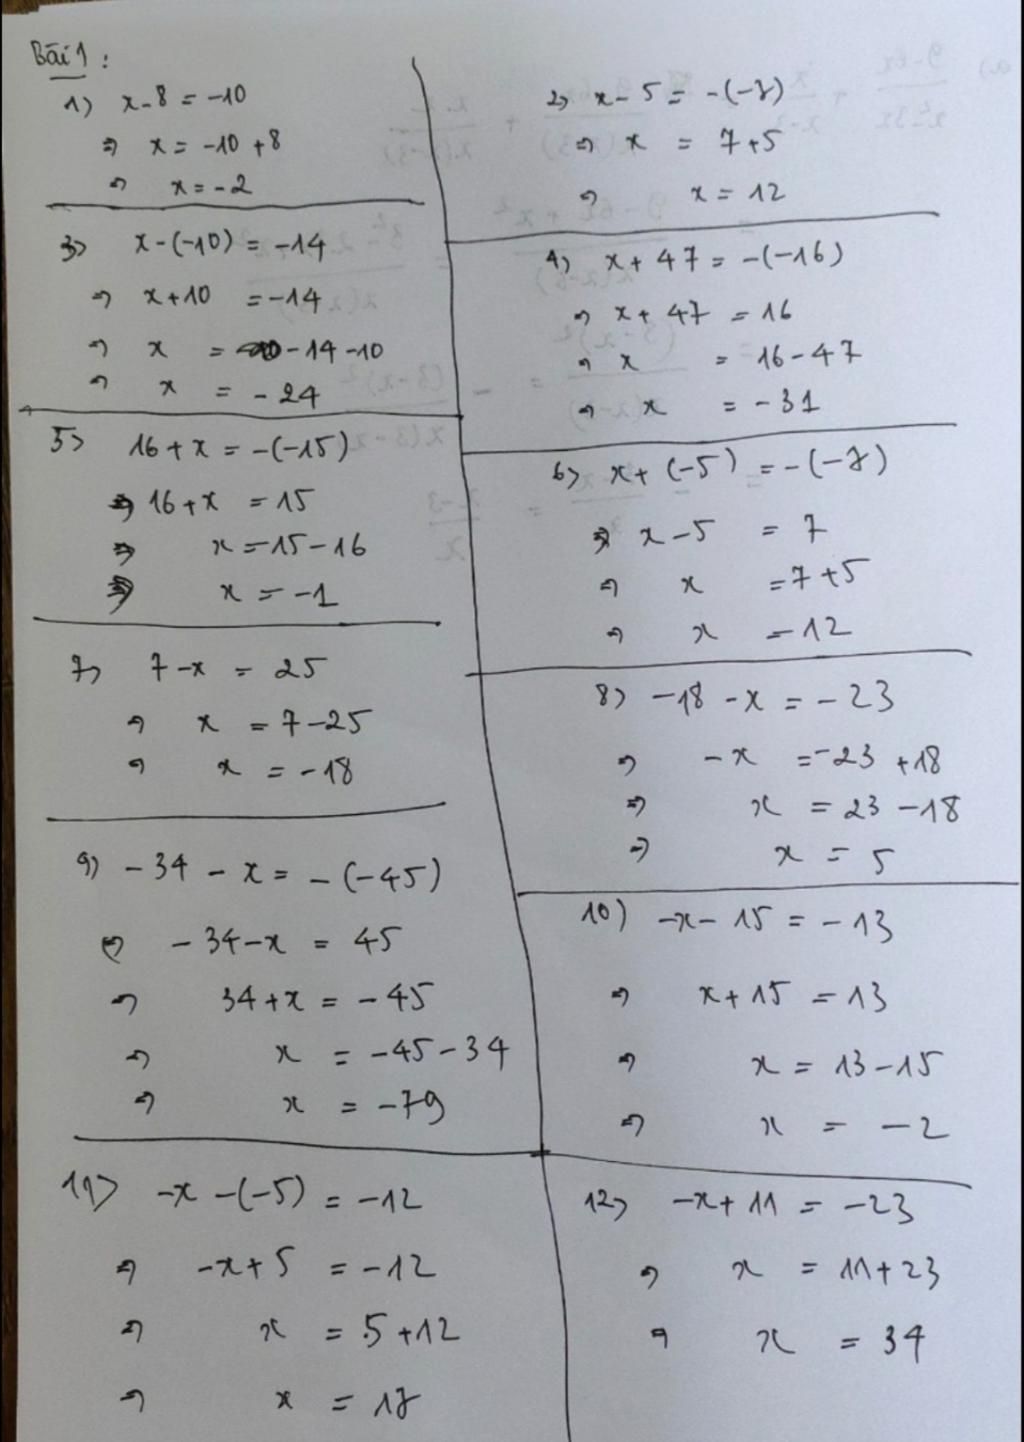 Bài 1:
1) x - 8 = -10
⇒ x = -10 + 8
⇒ x = -2
2) x - 5 = -(-7)
⇒ x = 7 + 5
⇒ x = 12
3) x - (-10) = -14
⇒ x + 10 = -14
⇒ x = -14 - 10
⇒ x = -24
4) x + 47 = -(-16)
⇒ x + 47 = 16
⇒ x = 16 - 47
⇒ x = -31
5) 16 + x = -(-15)
⇒ 16 + x = 15
⇒ x = 15 - 16
⇒ x = -1
6) x + (-5) = -(-7)
⇒ x - 5 = 7
⇒ x = 7 + 5
⇒ x = 12
7) 7 - x = 25
⇒ x = 7 - 25
⇒ x = -18
8) -18 - x = -23
⇒ -x = -23 + 18
⇒ x = 23 - 18
⇒ x = 5
9) -34 - x = -(-45)
⇒ -34 - x = 45
⇒ 34 + x = -45
⇒ x = -45 - 34
⇒ x = -79
10) -x - 15 = -13
⇒ x + 15 = 13
⇒ x = 13 - 15
⇒ x = -2
11) -x - (-5) = -12
⇒ -x + 5 = -12
⇒ x = 5 + 12
⇒ x = 17
12) -x + 11 = -23
⇒ x = 11 + 23
⇒ x = 34